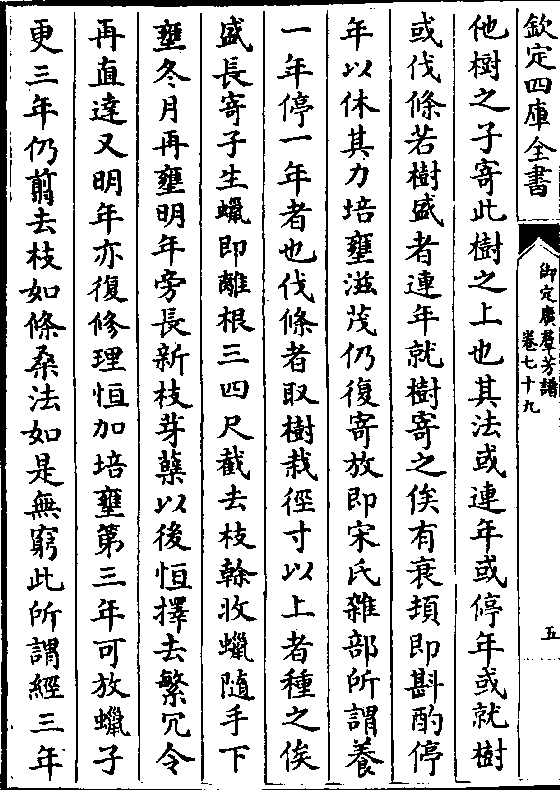 欽定四庫全書
御定廣羣芳譜
卷七十九
五
他樹之子寄此樹之上也其法或連年或停年或就樹
或伐條若樹盛者連年就樹寄之俟有衰頓即斟酌停
年以休其力培壅滋茂仍復寄放即宋氏雜部所謂養
一年停一年者也伐條者取樹栽徑寸以上者種之俟
盛長寄子生蠟即離根三四尺截去枝榦收蠟隨手下
壅冬月再壅明年旁長新枝芽蘖以後恒擇去繁冗令
再直達又明年亦復修理恒加培壅第三年可放蠟子
更三年仍翦去枝如條桑法如是無窮此所謂經三年